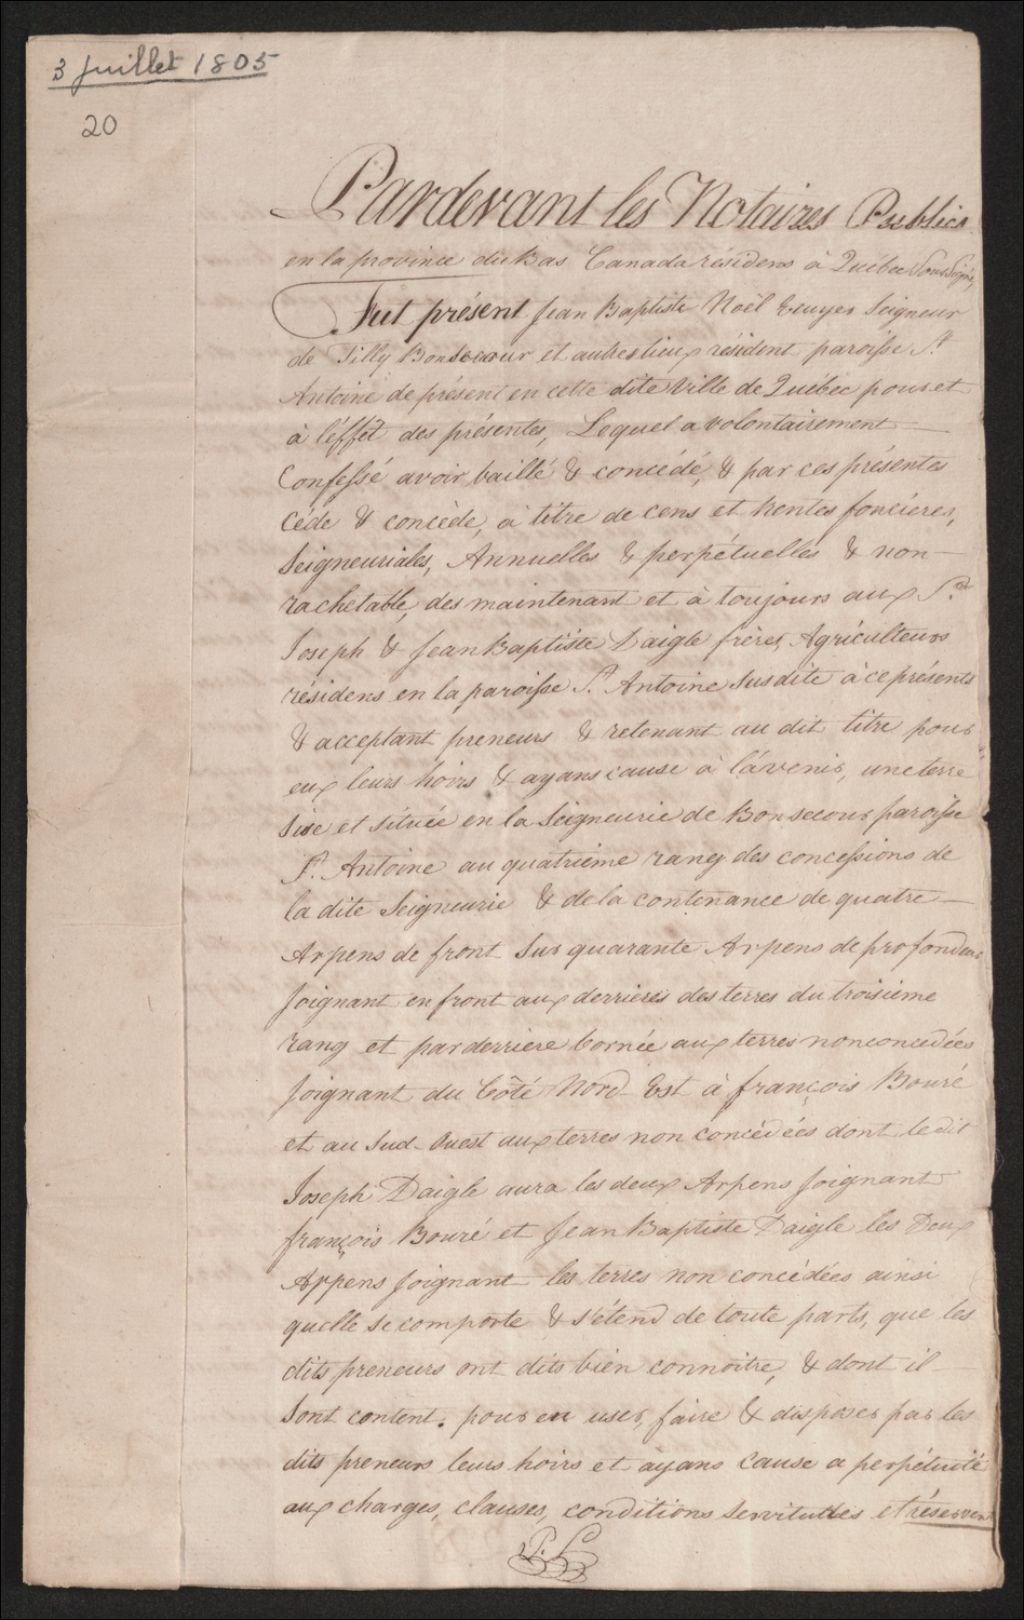 3 Juillet 1805
20
Pardevant les Notaires Publics
en la province du Bas Canada résidens à Québec Soussignés
Fut présent Jean Baptiste Noël Ecuyer Seigneur
de Tilly Bonsecour et autres lieux résident paroisse St.
Antoine de présent en cette dite Ville de Québec pour et
à l'éffet des présentes, Lequel a volontairement
Confessé avoir baillé & concédé, & par ces présentes
céde & concède, à titre de cens et Rentes foncieres,
Seigneuriales, Annuelles & perpétuelles & non
rachetable, des maintenant et à toujours aux Srs.
Joseph & Jean Baptiste Daigle frères, Agriculteurs
résidens en la paroisse St. Antoine susdite à ce présents
& acceptant preneurs & retenant au dit titre pour
eux leurs hoirs & ayans cause à l'ávenir, une terre
sise et située en la Seigneurie de Bonsecour paroisse
St. Antoine au quatrieme rang des concessions de
la dite Seigneurie & de la contenance de quatre
Arpens de front sur quarante Arpens de profondeur
Joignant en front aux derrieres des terres du troisieme
rang et par derriere bornée aux terres non concedées
Joignant du Côté Nord-Est à françois Bouré
et au Sud-Ouest aux terres non concédées dont le dit
Joseph Daigle aura les deux Arpens Joignant
françois Bouré et Jean Baptiste Daigle les Deux
Arpens Joignant les terres non concédées ainsi
quelle se comporte & s'étend de toute parts, que les
dits preneurs ont dits bien connoitre, & dont il
sont content. pour en user, faire & disposer par les
dits preneurs leurs hoirs et ayans cause a perpétuité
aux charges, clauses, conditions servitudes et réserves
P. L